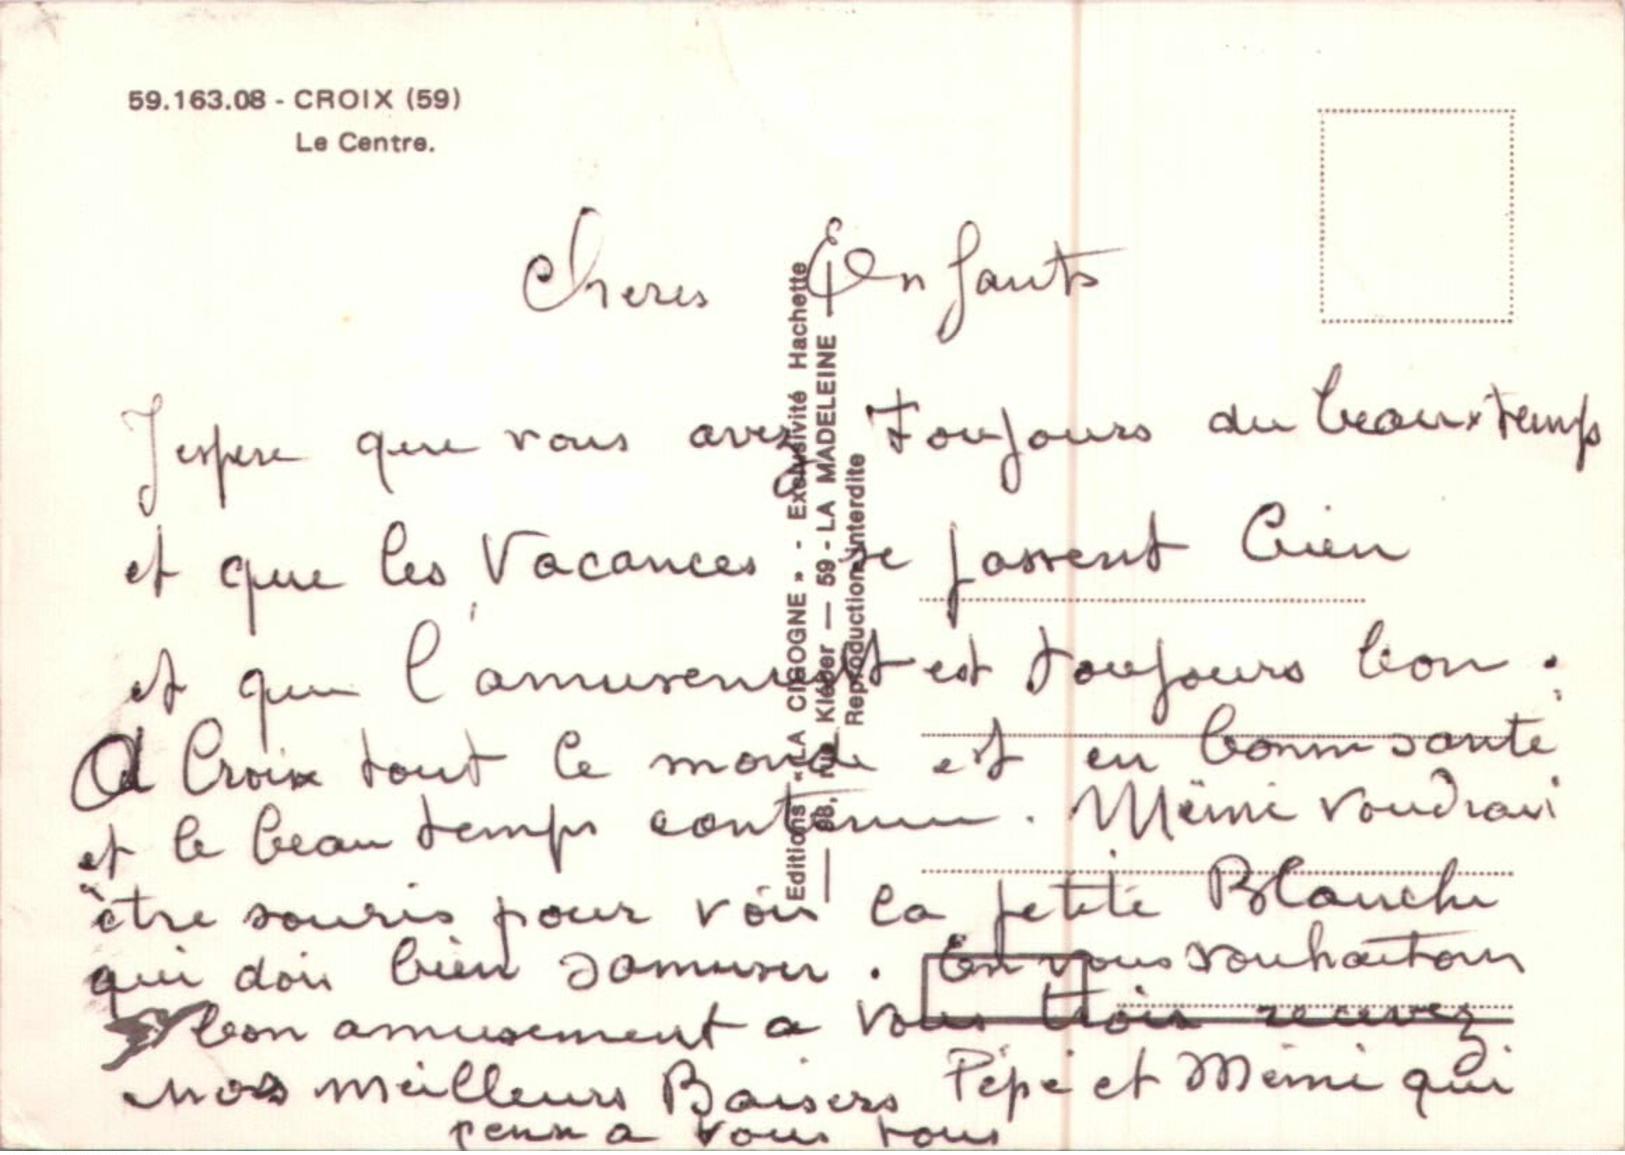 59.163.08 - CROIX (59)
Le Centre.
Cheres Enfants
Jespere que vous avez Toujours du beaux temps
et que les Vacances se passent bien
et que l'amusement est toujours bon.
A Croix tout le monde est en bonne santé
et le beau temps continue. Mémé voudrai
être souris pour voir la petite Blanche
qui doi bien samuser. En vous souhaitons
bon amusement a vous trois recevez
nos meilleurs Baisers Pépé et Mémé qui
pense a vous tous
Editions « LA CIGOGNE » - Exclusivité Hachette
Kléber — 59 - LA MADELEINE —
Reproduction interdite